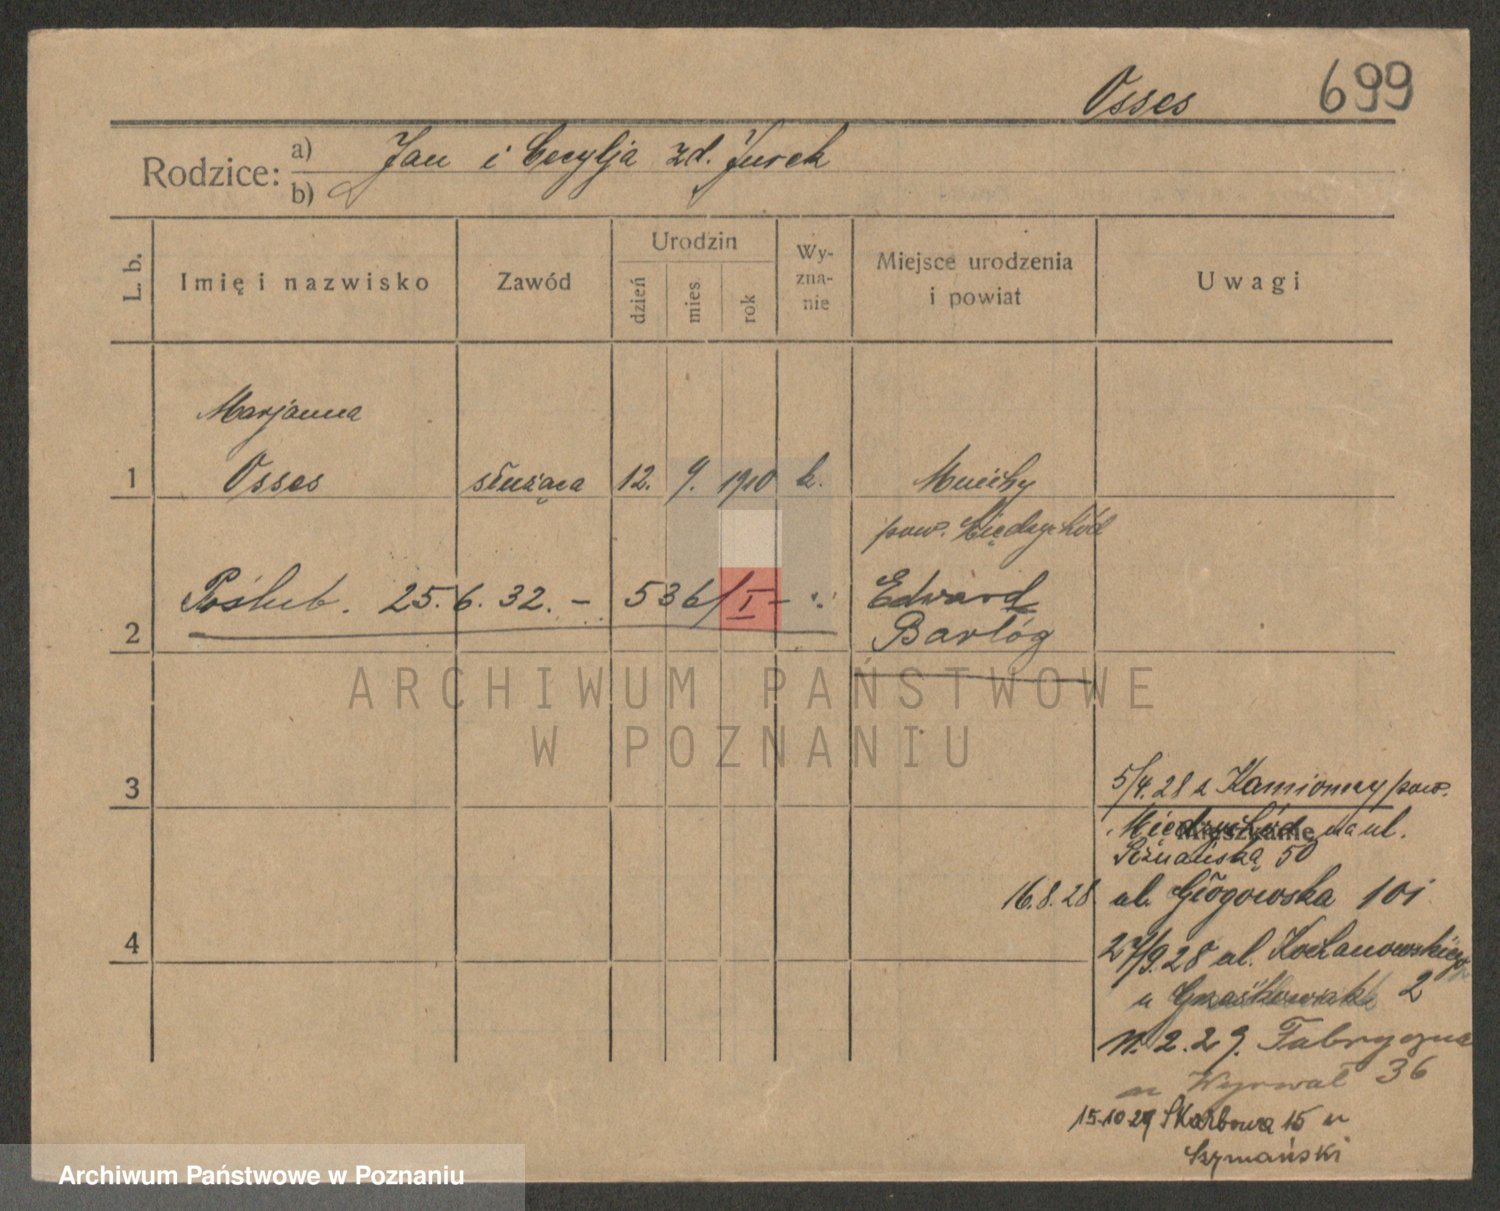 Osses 699
Rodzice: a) Jan i Cecylja zd. Jurek
b)
L. b. Imię i nazwisko Zawód Urodzin dzień mies. rok Wy-zna-nie Miejsce urodzenia i powiat Uwagi
Marjanna
1 Osses służąca 12. 9. 1910 k. Mnichy
pow. Międzychód
Poślub. 25.6.32. – 536/I – Edward
2 Barłóg
ARCHIWUM PAŃSTWOWE
W POZNANIU
3 5/4.28 z Kamionny pow.
Międzychód na ul.
Mieszkanie
Poznańską 50
16.8.28 ul. Głogowska 101
4 27/9.28 ul. Kochanowskiego
u 2
11.2.29. Fabryczna
u Wyrwał 36
15.10.29 Skarbowa 15 u
Szymański
Archiwum Państwowe w Poznaniu